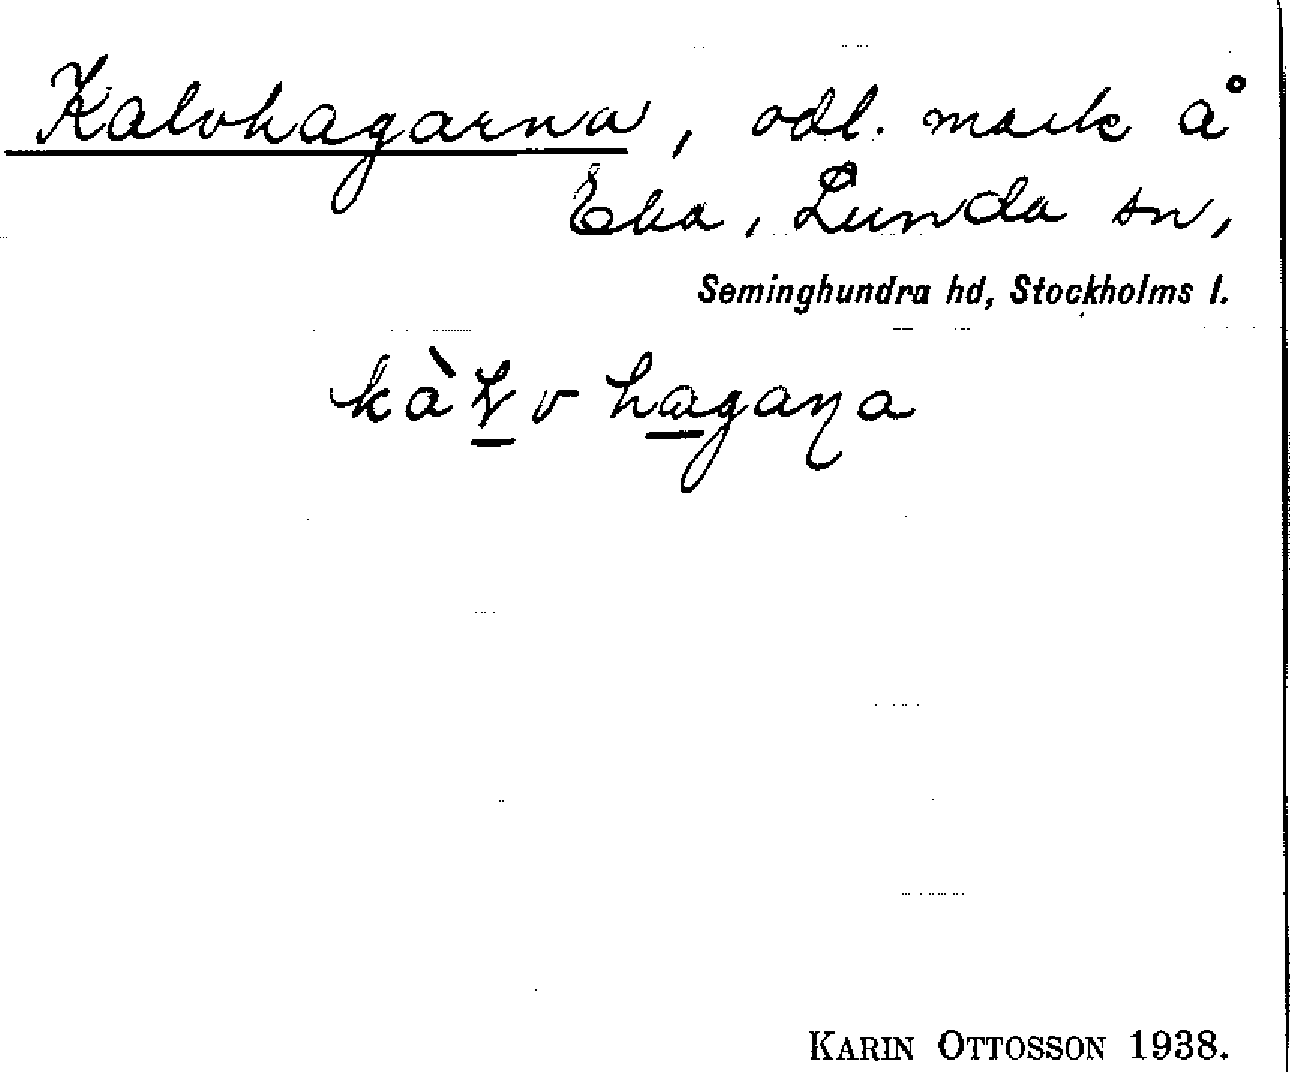 Kalvhagarna, odl. mark å
Eka, Lunda sn,
Seminghundra hd, Stockholms l.
kàḷv hagaɳa
KARIN OTTOSSON 1938.